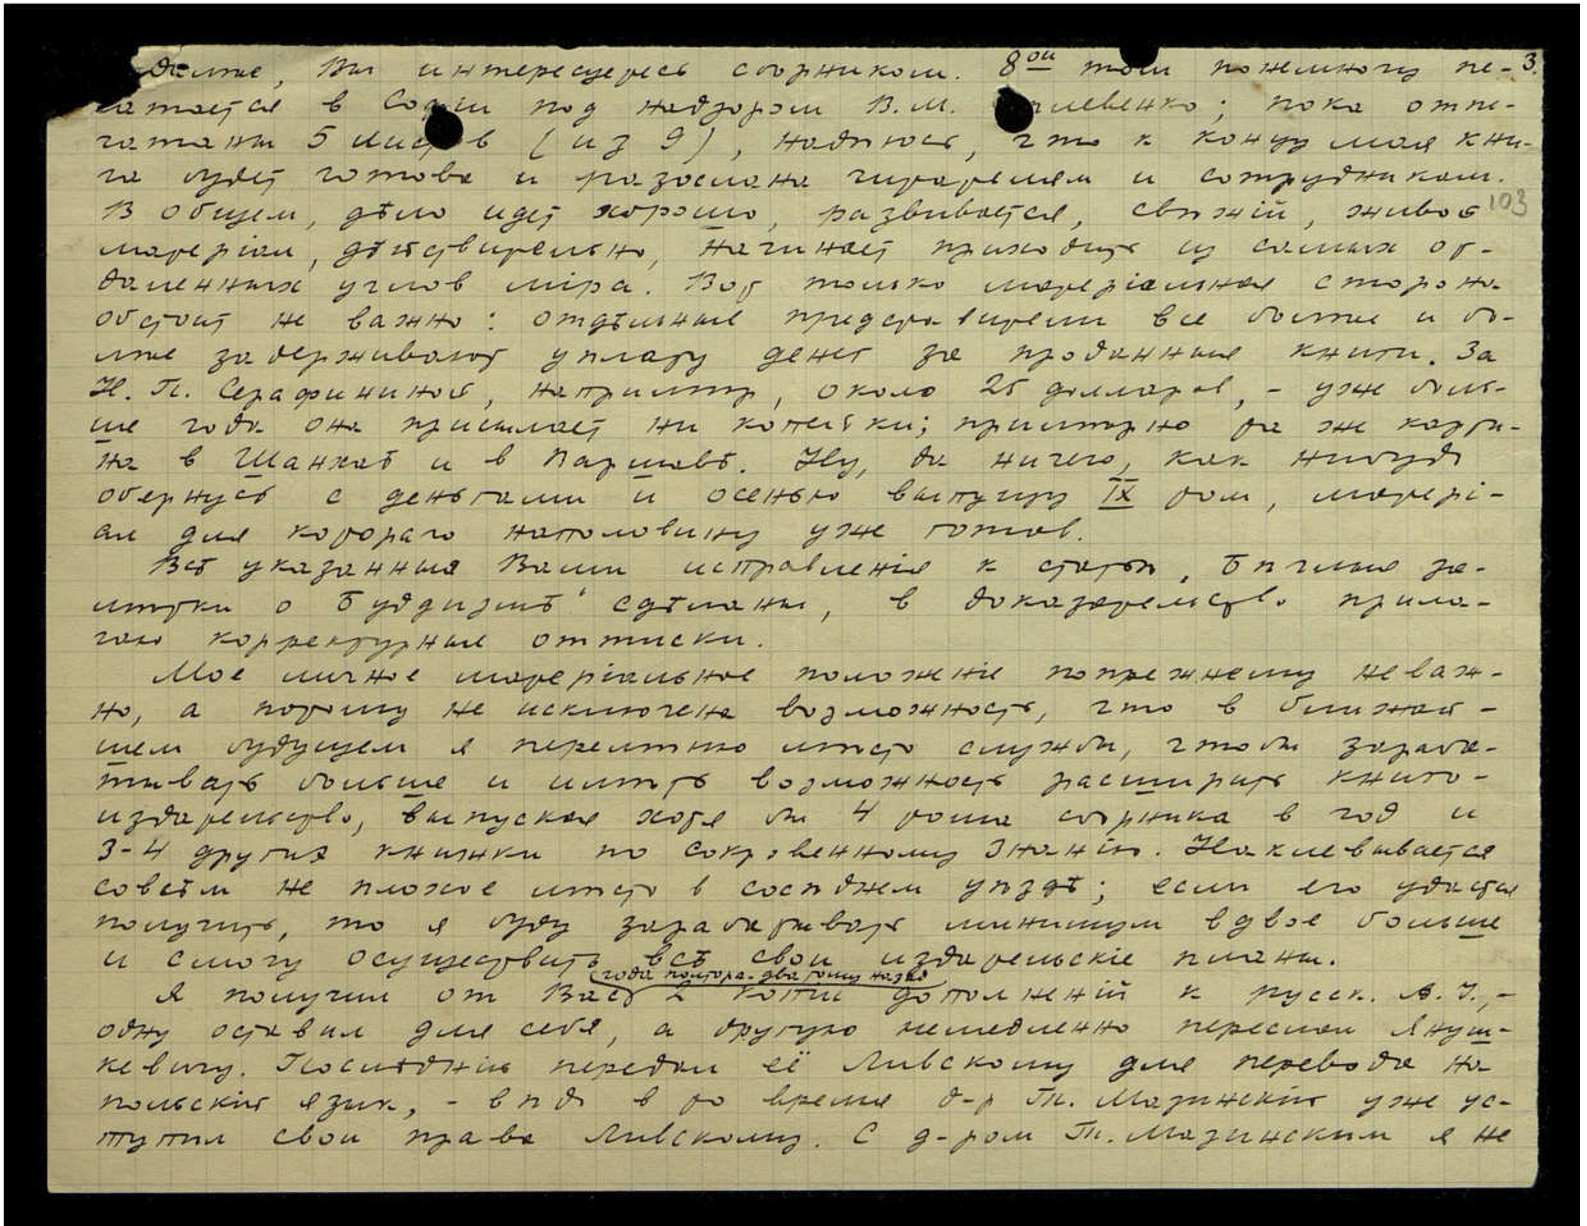 Далѣе, Вы интересуетесь сборником. 8ой том понемногу пе- 3.
чатается в Софіи под надзором В.М. ; пока отпе-
чатаны 5 листов (из 9), надѣюсь, что к концу мая кни-
га будет готова и разослана читателям и сотрудникам.
В общем, дѣло идет хорошо, развивается, свѣжій, живой 103
матеріал, дѣйствительно, начинает приходить из самых от-
даленных углов міра. Вот только матеріальная сторона
обстоит не важно: отдѣльные представители все болѣе и бо-
лѣе задерживают уплату денег за проданныя книги. За
Н. П. Серафининой, напримѣр, около 25 долларов, - уже боль-
ше года она присылает ни копейки; примѣрно та же карти-
на в Шанхаѣ и в Варшавѣ. Ну, да ничего, как нибудь
обернусь с деньгами и осенью выпущу IX том, матері-
ал для котораго наполовину уже готов.
Всѣ указанныя Вами исправленія к статьѣ „Бѣглыя за-
мѣтки о Буддизмѣ" сдѣланы, в доказательство прила-
гаю корректурные оттиски.
Мое личное матеріальное положеніе попрежнему неваж-
но, а потому не исключена возможность, что в ближай-
шем будущем я перемѣню мѣсто службы, чтобы зараба-
тывать больше и имѣть возможность расширить книго-
издательство, выпуская хотя бы 4 тома сборника в год и
3-4 других книжки по Сокровенному Знанію. Наклевывается
совсѣм не плохое мѣсто в сосѣднем уѣздѣ; если его удастся
получить, то я буду зарабатывать минимум вдвое больше
и смогу осуществить всѣ свои издательскіе планы.
(года полтора-два тому назад)
Я получил от Вас 2 копіи дополненій к русск. А. І., -
одну оставил для себя, а другую немедленно переслал Януш-
кевичу. Послѣдній передал её Ливскому для перевода на
польскій язык, - вѣдь в то время д-р Гл. Мазинскій уже ус-
тупил свои права Ливскому. С д-ром Гл. Мазинским я не